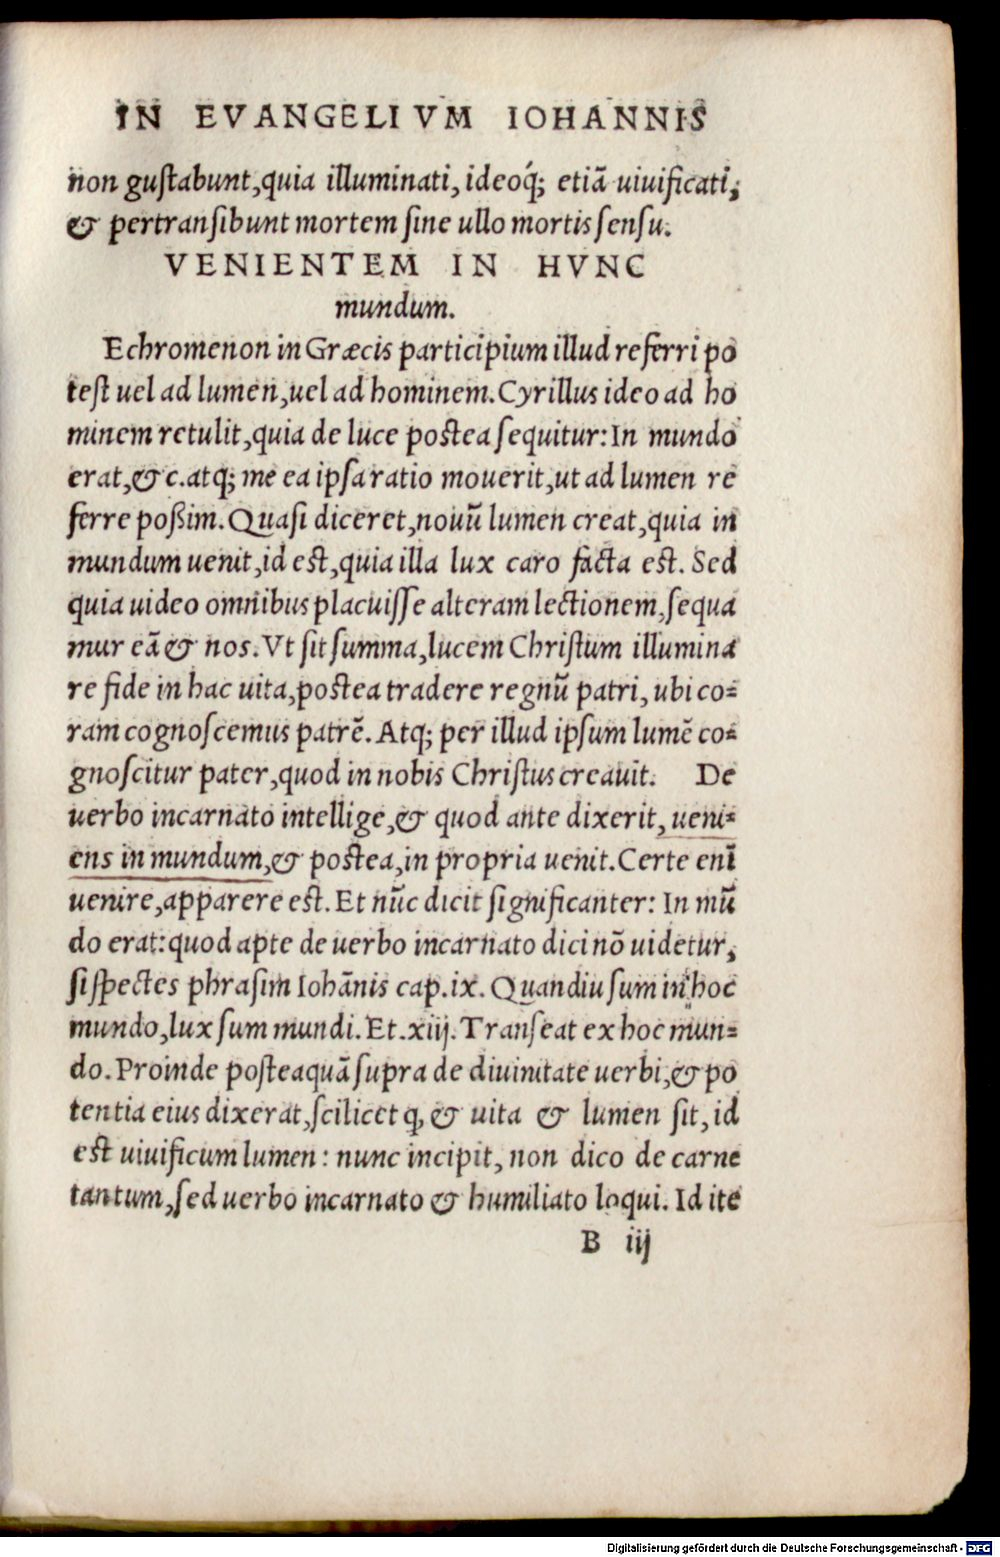 IN EVANGELIVM IOHANNIS
non gustabunt, quia illuminati, ideoq́; etiã uiuificati,
& pertransibunt mortem sine ullo mortis sensu.
VENIENTEM IN HVNC
mundum.
Echromenon in Græcis participium illud referri po
test uel ad lumen, uel ad hominem. Cyrillus ideo ad ho
minem retulit, quia de luce postea sequitur: In mundo
erat, &c. atq; me ea ipsa ratio mouerit, ut ad lumen re
ferre poßim. Quasi diceret, nouũ lumen creat, quia in
mundum uenit, id est, quia illa lux caro facta est. Sed
quia uideo omnibus placuisse alteram lectionem, sequa
mur eã & nos. Vt sit summa, lucem Christum illumina
re fide in hac uita, postea tradere regnũ patri, ubi co=
ram cognoscemus patrẽ. Atq; per illud ipsum lumẽ co=
gnoscitur pater, quod in nobis Christus creauit. De
uerbo incarnato intellige, & quod ante dixerit, ueni=
ens in mundum, & postea, in propria uenit. Certe enĩ
uenire, apparere est. Et nũc dicit significanter: In mũ
do erat: quod apte de uerbo incarnato dici nõ uidetur,
si spectes phrasim Iohãnis cap. ix. Quandiu sum in hoc
mundo, lux sum mundi. Et. xiij. Transeat ex hoc mun=
do. Proinde posteaquã supra de diuinitate uerbi, & po
tentia eius dixerat, scilicet q, & uita & lumen sit, id
est uiuificum lumen: nunc incipit, non dico de carne
tantum, sed uerbo incarnato & humiliato loqui. Id ite
B iij
Digitalisierung gefördert durch die Deutsche Forschungsgemeinschaft - DFG